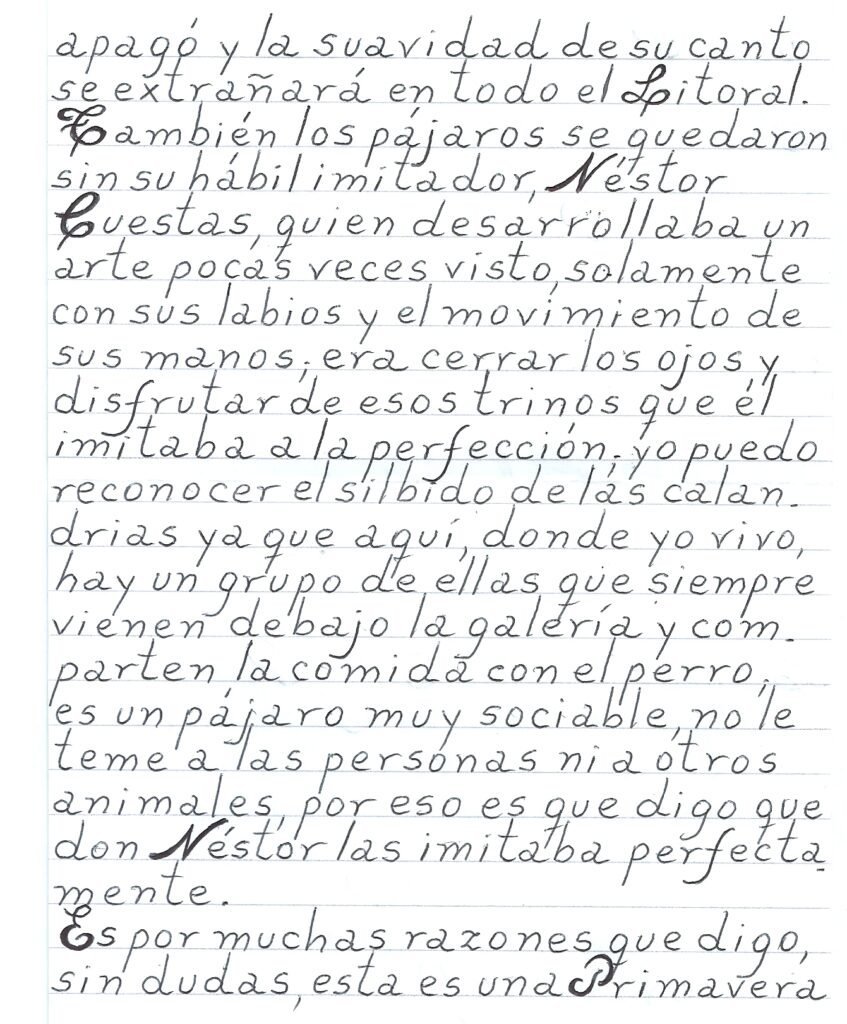 apagó y la suavidad de su canto
se extrañará en todo el Litoral.
También los pájaros se quedaron
sin su hábil imitador, Néstor
Cuestas, quien desarrollaba un
arte pocas veces visto, solamente
con sus labios y el movimiento de
sus manos; era cerrar los ojos y
disfrutar de esos trinos que él
imitaba a la perfección. yo puedo
reconocer el silbido de las calan-
drias ya que aquí, donde yo vivo,
hay un grupo de ellas que siempre
vienen debajo la galería y com-
parten la comida con el perro;
es un pájaro muy sociable, no le
teme a las personas ni a otros
animales, por eso es que digo que
don Néstor las imitaba perfecta-
mente.
Es por muchas razones que digo,
sin dudas, esta es una Primavera